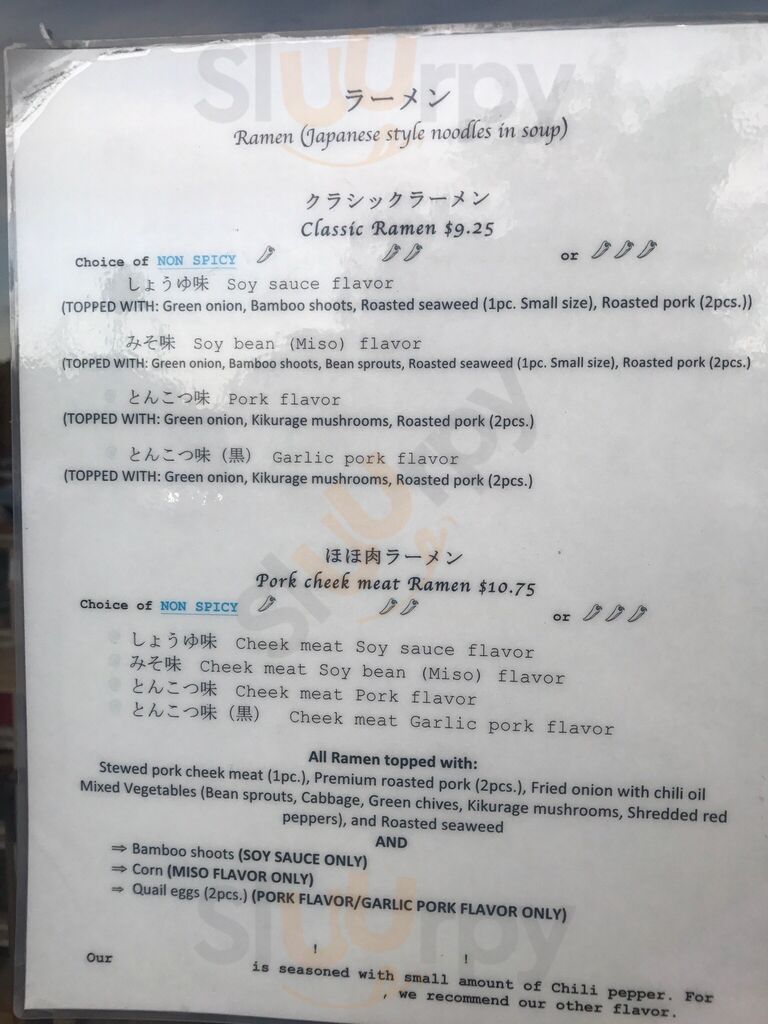 ラーメン
Ramen (Japanese style noodles in soup)
クラシックラーメン
Classic Ramen $9.25
Choice of NON SPICY or
しょうゆ味 Soy sauce flavor
(TOPPED WITH: Green onion, Bamboo shoots, Roasted seaweed (1pc. Small size), Roasted pork (2pcs.))
みそ味 Soy bean (Miso) flavor
(TOPPED WITH: Green onion, Bamboo shoots, Bean sprouts, Roasted seaweed (1pc. Small size), Roasted pork (2pcs.)
とんこつ味 Pork flavor
(TOPPED WITH: Green onion, Kikurage mushrooms, Roasted pork (2pcs.)
とんこつ味（黒） Garlic pork flavor
(TOPPED WITH: Green onion, Kikurage mushrooms, Roasted pork (2pcs.)
ほほ肉ラーメン
Pork cheek meat Ramen $10.75
Choice of NON SPICY or
しょうゆ味 Cheek meat Soy sauce flavor
みそ味 Cheek meat Soy bean (Miso) flavor
とんこつ味 Cheek meat Pork flavor
とんこつ味（黒） Cheek meat Garlic pork flavor
All Ramen topped with:
Stewed pork cheek meat (1pc.), Premium roasted pork (2pcs.), Fried onion with chili oil
Mixed Vegetables (Bean sprouts, Cabbage, Green chives, Kikurage mushrooms, Shredded red
peppers), and Roasted seaweed
AND
⇒ Bamboo shoots (SOY SAUCE ONLY)
⇒ Corn (MISO FLAVOR ONLY)
⇒ Quail eggs (2pcs.) (PORK FLAVOR/GARLIC PORK FLAVOR ONLY)
! !
Our is seasoned with small amount of Chili pepper. For
, we recommend our other flavor.
Sluurpy
Sluurpy
Sluurpy